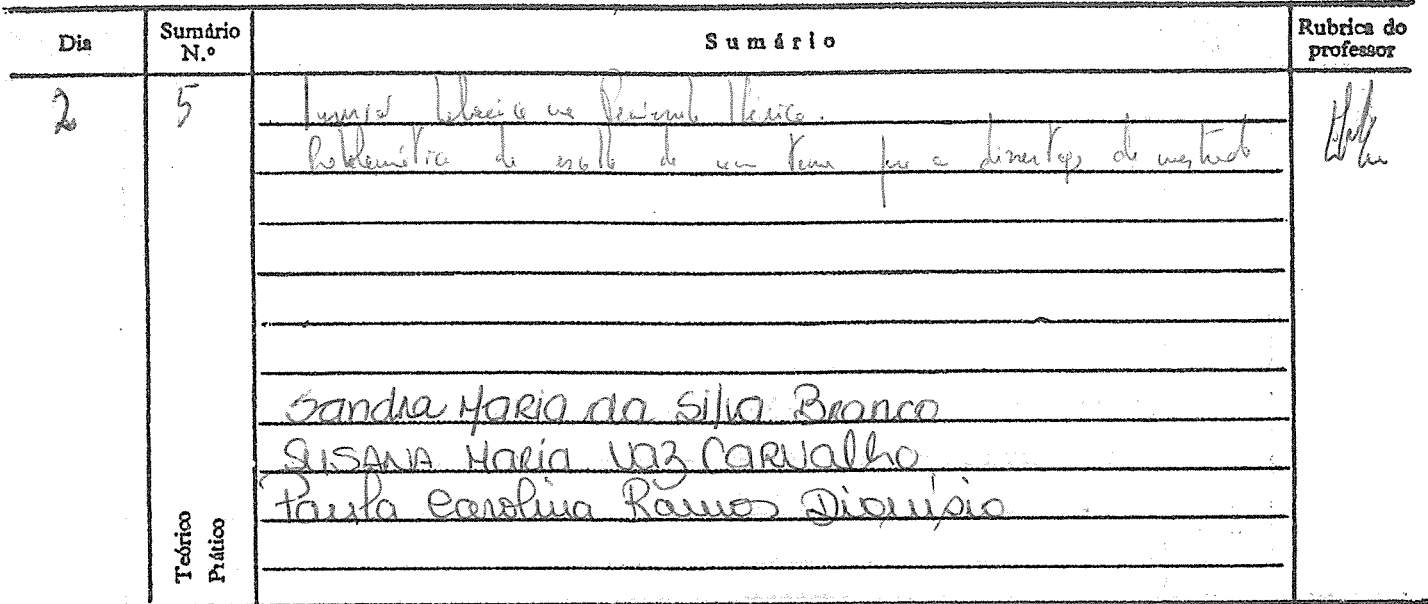 Dia
Sumário N.º
Sumário
Rubrica do professor
2
5
na Península Ibérica.
Problemática da escolha de um tema para a dissertação de mestrado
Sandra Maria da Silva Branco
SUSANA Maria Vaz Carvalho
Paula Carolina Ramos Dionísio
Teórico
Prático